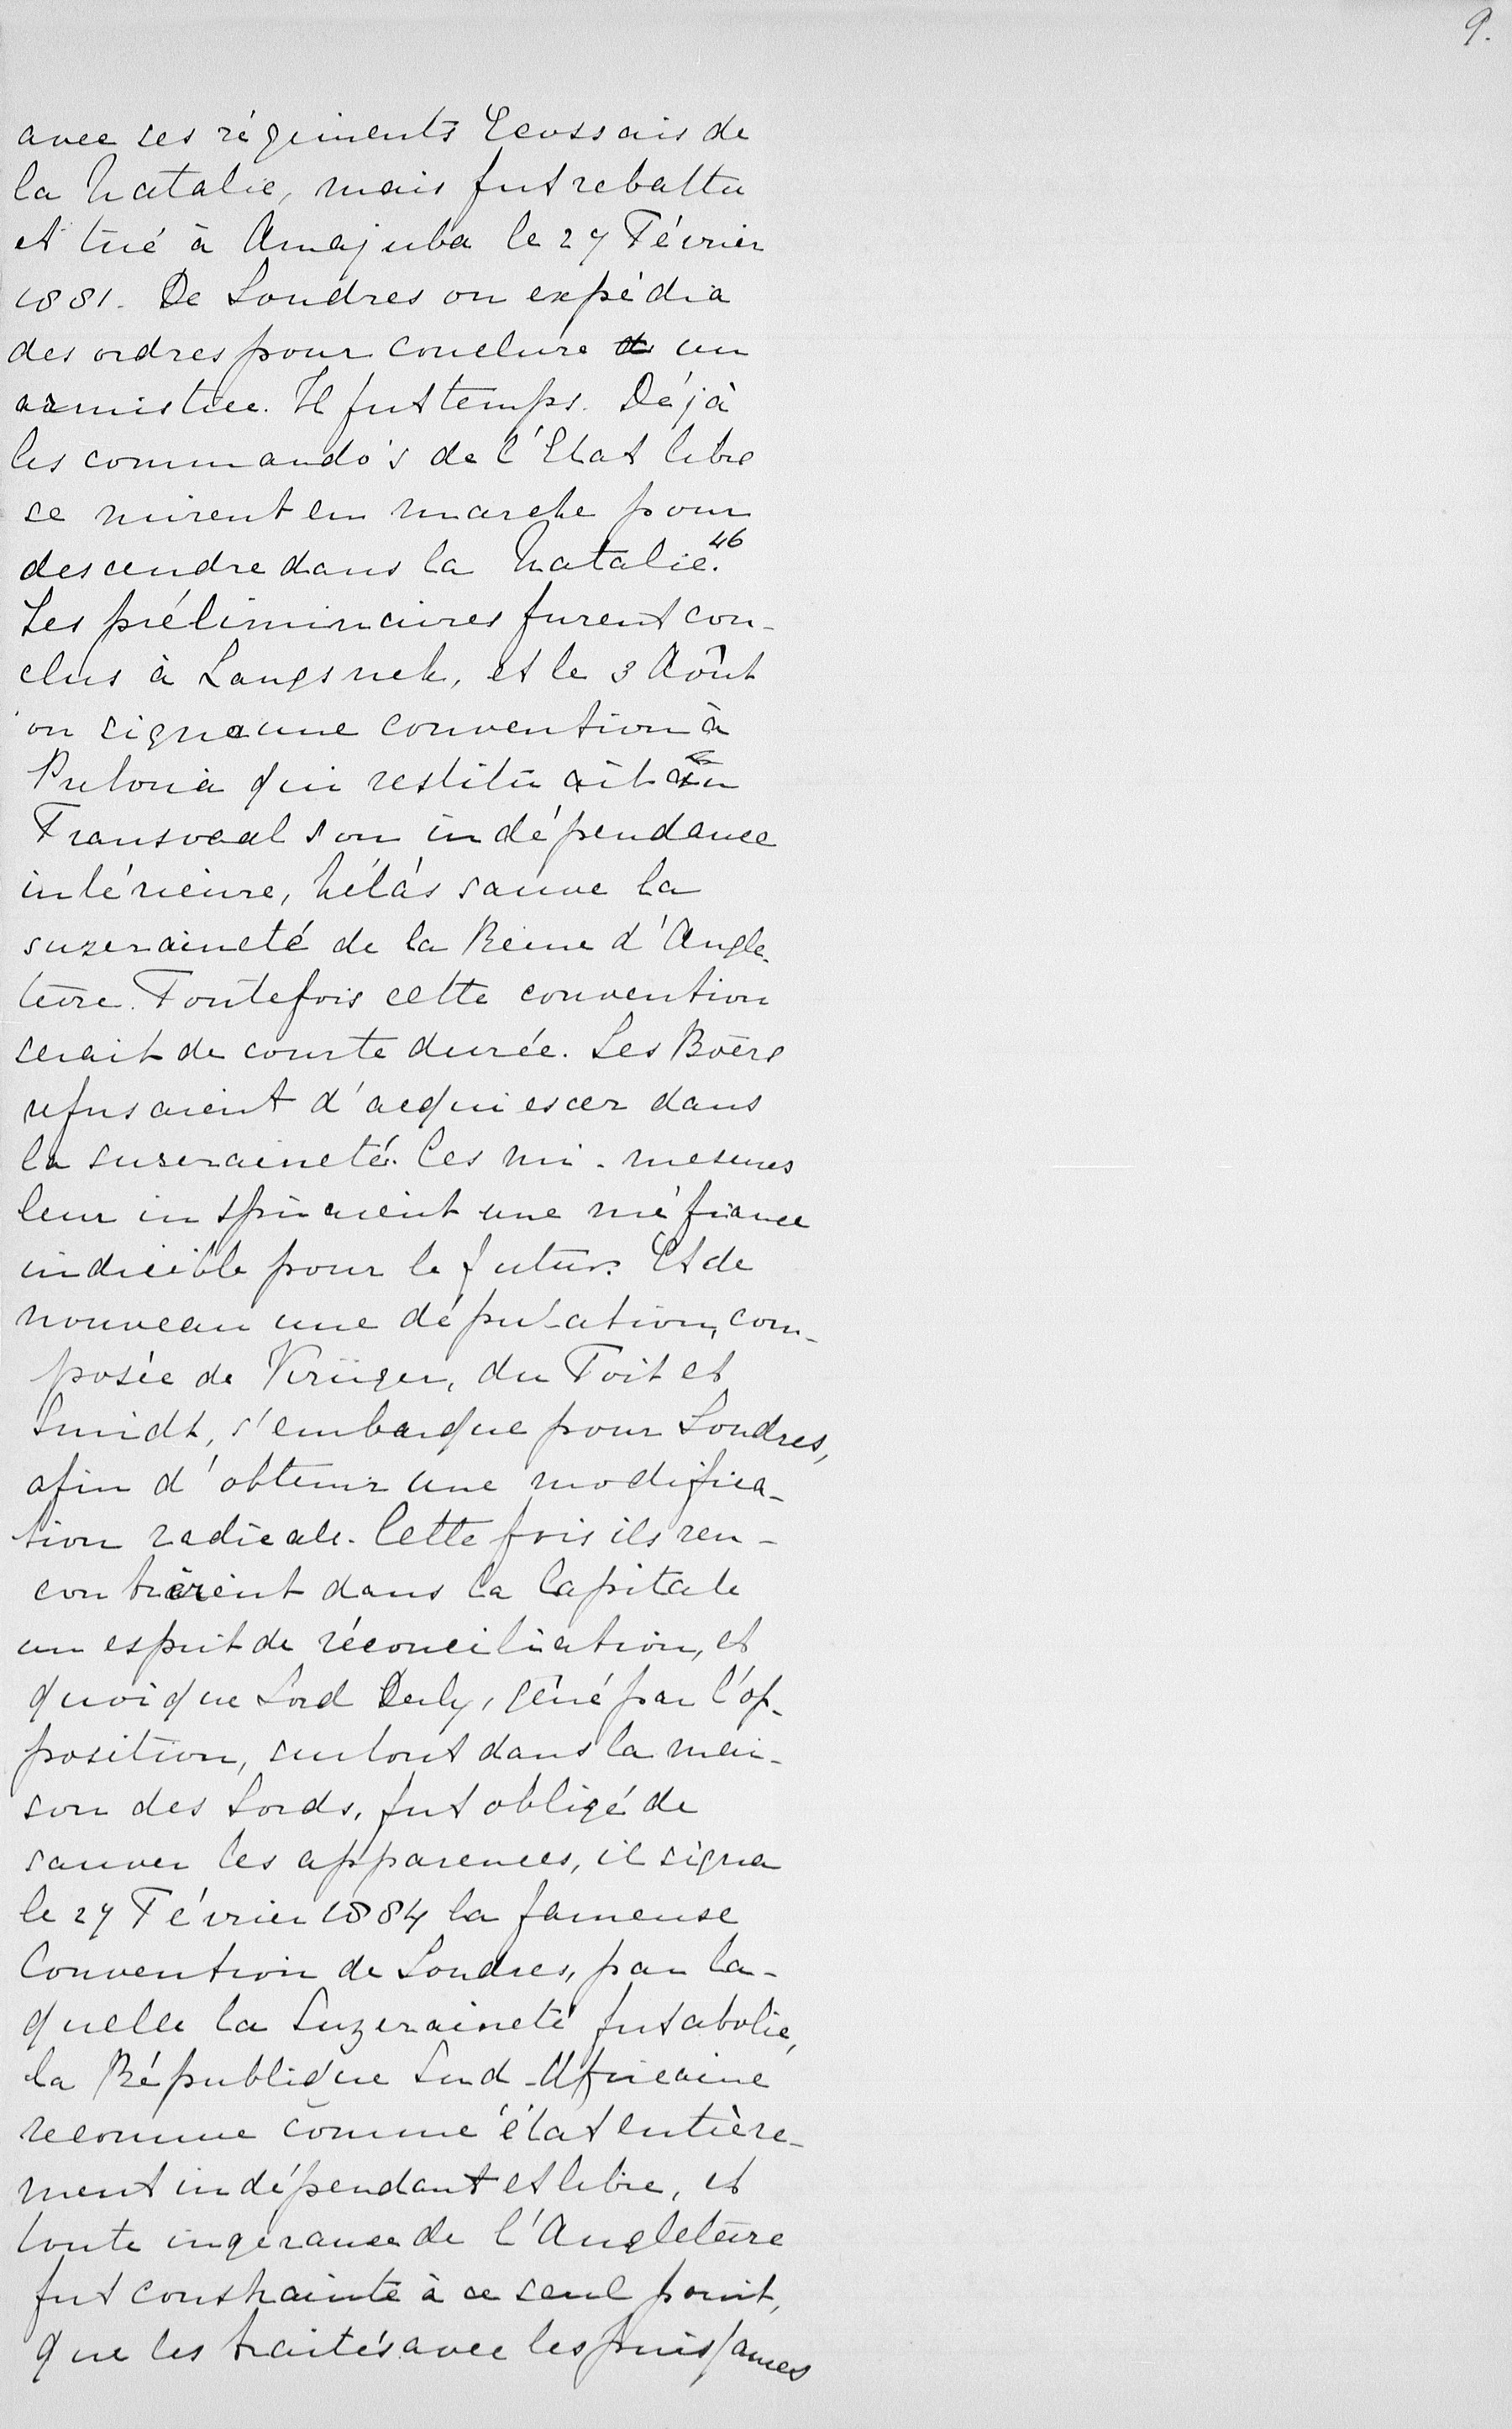 9.
avec ses régiments Ecossais de
la Natalie, mais fut rebattu
et tué à Amajuba le 27 Février
1881. De Londres on expédia
des ordres pour conclure un
armistice. Il fut temps. Déjà
les commando's de l'Etat libre
se mirent en marche pour
descendre dans la Natalie.46
Les préliminaires furent con-
clus à Langsnek, et le 3 Août
on signa une convention à
Pretoria qui restituait au
Transvaal son indépendance
intérieure, hélás sauve la
suzeraineté de la Reine d'Angle-
terre. Toutefois cette convention
serait de courte durée. Les Boers
refusaient d'acquiescer dans
la suzeraineté. Ces mi-mesures
leur inspiraient une méfiance
indicible pour le futur. Et de
nouveau une députation, com-
posée de Krüger, du Toit et
Smidt, s'embarque pour Londres,
afin d'obtenir une modifica-
tion radicale. Cette fois ils ren-
contrèrent dans la Capitale
un esprit de réconciliation, et
quoique Lord Derby, gêné par l'op-
position, surtout dans la mai-
son des Lords, fut obligé de
sauver les apparences, il signa
le 27 Février 1884 la fameuse
Convention de Londres, par la-
quelle la Suzeraineté fut abolie,
la République Sud-Africaine
reconnue comme état entière-
ment indépendant et libre, et
toute ingerance de l'Angleterre
fut constrainte à ce seul point,
que les traités avec les puissances